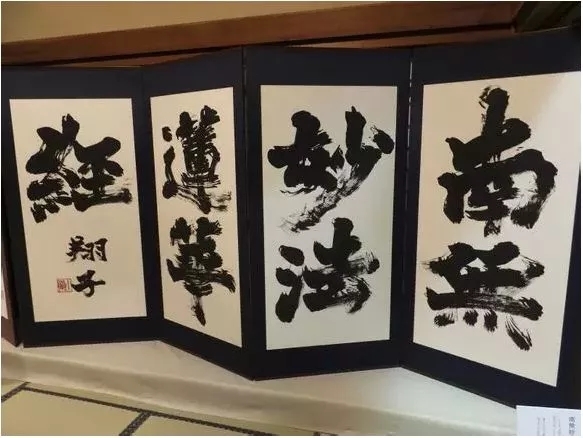 南無
妙法
蓮華
経
翔子